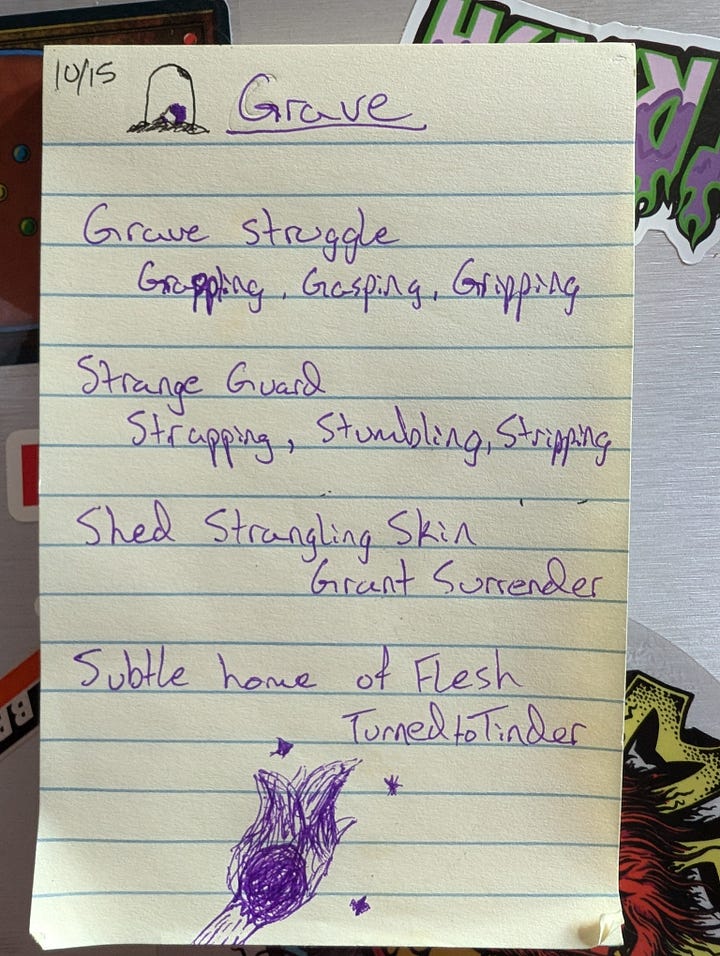 10/15
Grave
Grave struggle
Grappling, Gasping, Gripping
Strange Guard
Strapping, Stumbling, Stripping
Shed Strangling Skin
Grant Surrender
Subtle home of Flesh
Turned to Tinder